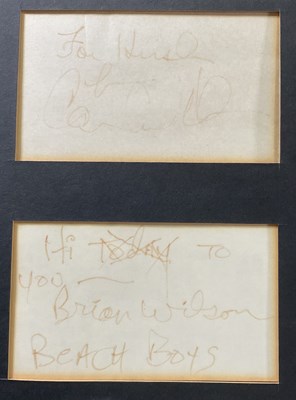 For Hersh
Hi Today TO
you —
Brian Wilson
BEACH BOYS